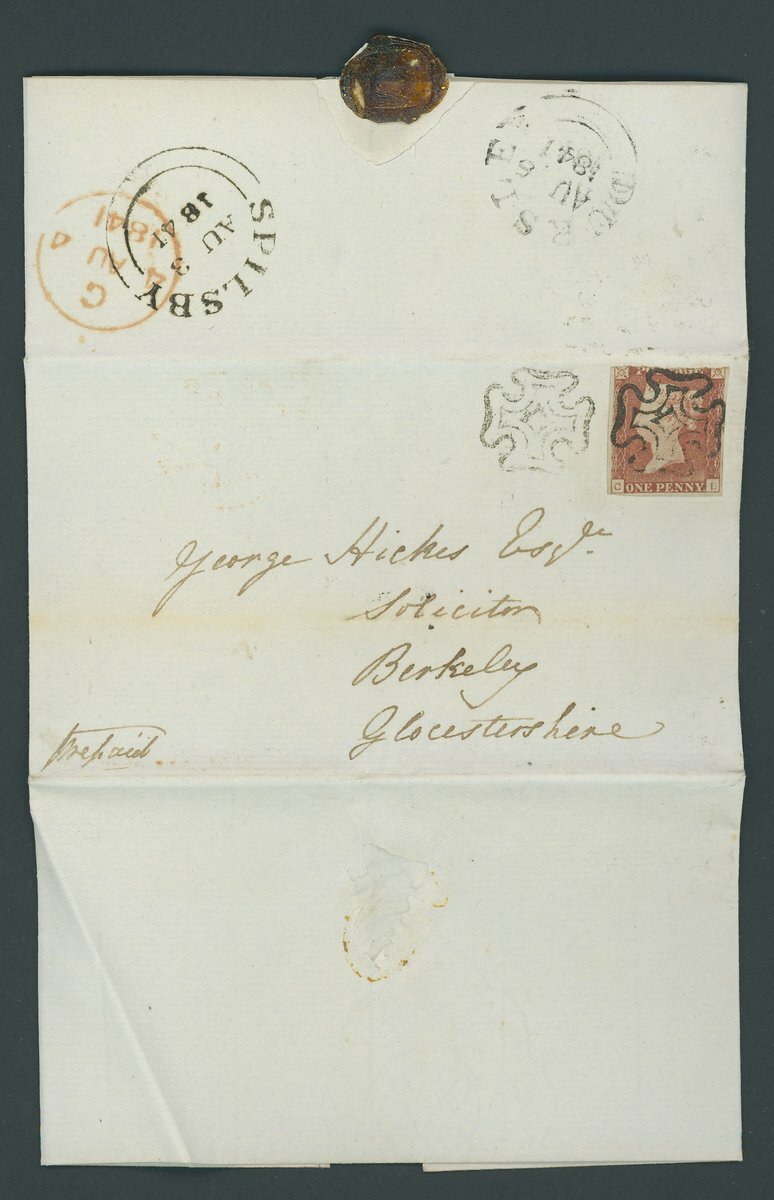 DURSLEY
AU 5
1841
SPILSBY
AU 3
1841
C
4 AU 4
1841
C L
ONE PENNY
George Hickes Esqre
Solicitor
Berkeley
Glocestershire
Prepaid